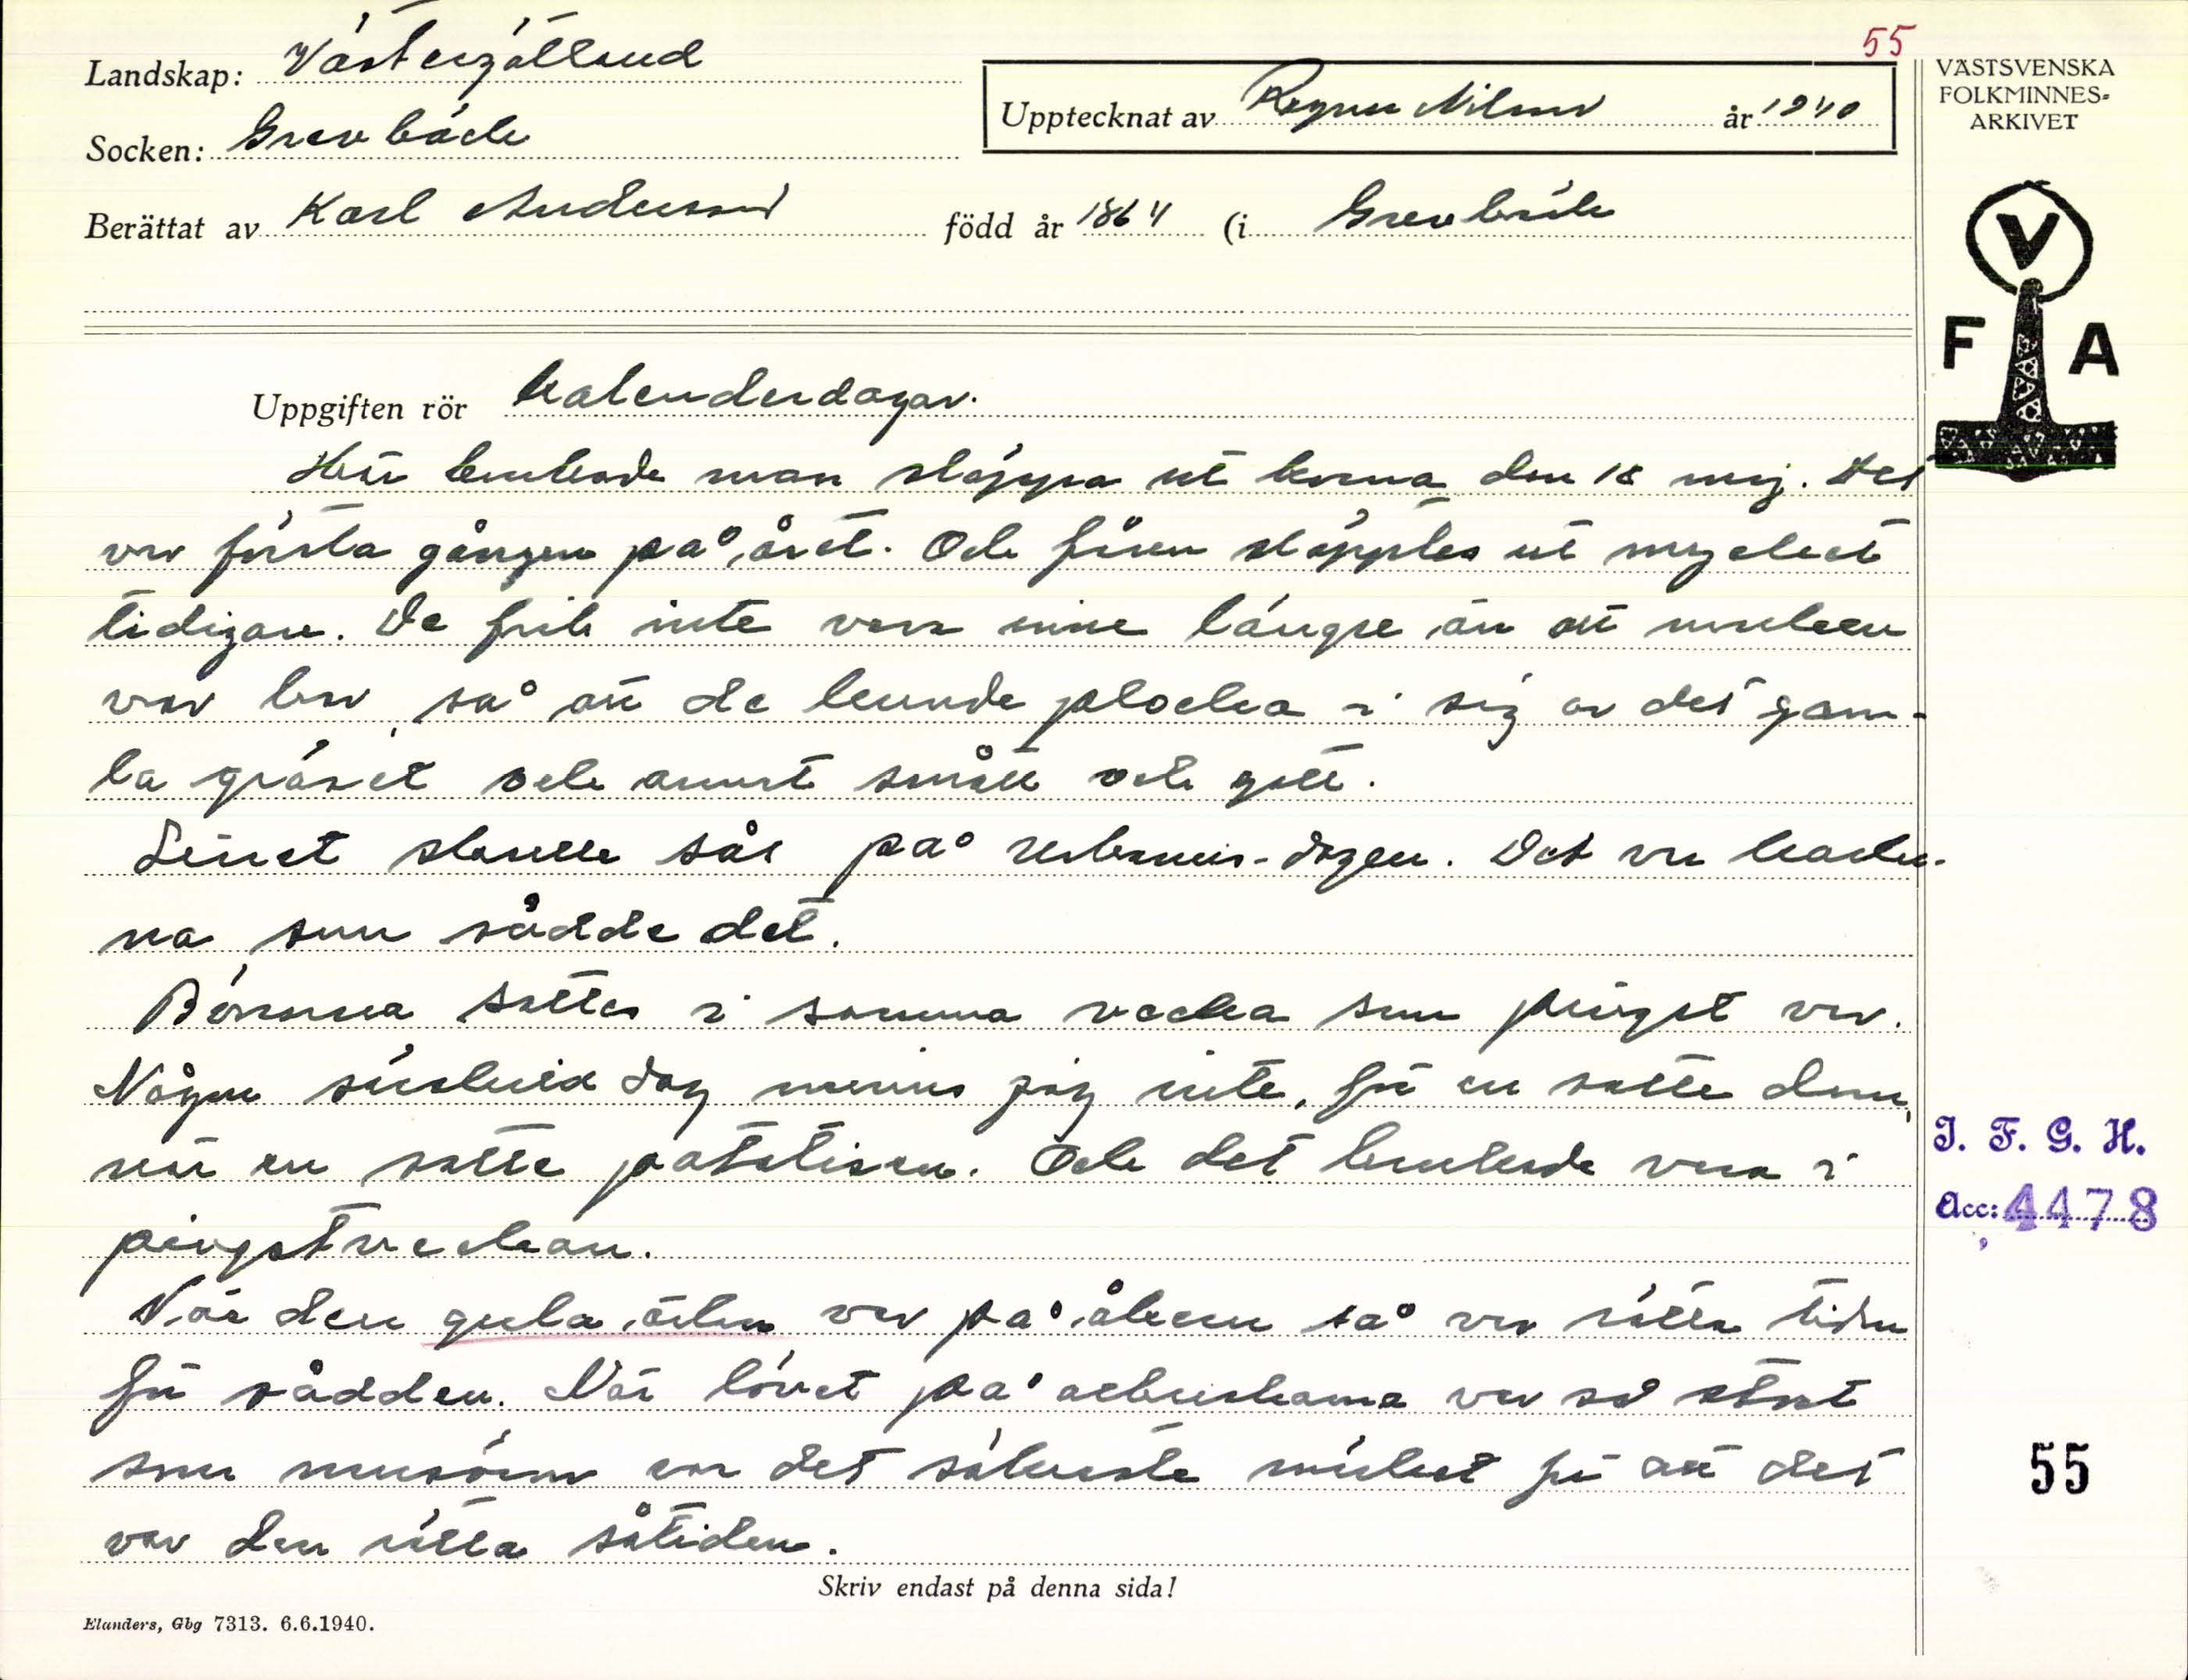 55
Landskap: Västergötland
Socken: Grevbäck
Upptecknat av Ragnar Nilsson år 1940
Berättat av Karl Andersson född år 1864 (i Grevbäck
VÄSTSVENSKA
FOLKMINNES-
ARKIVET
V
F A
Uppgiften rör Kalenderdagar.
Här brukade man släppa ut korna den 18 maj. Det
var första gången på året. Och fåren släpptes ut mycket
tidigare. De fick inte vara inne längre än att marken
var bar, så att de kunde plocka i sig av det gam-
la gräset och annat smått och gott.
Linet skulle sås på urbanus-dagen. Det var kvin
na som sådde det.
Bönorna sattes i samma vecka som pingst var.
Någon särskild dag minns jag inte, för en satte dem,
när en satte potatisen. Och det brukade vara i
pingstveckan.
När den gula ärlan var på åkern så var rätta tiden
för sådden. När lövet på ekbuskarna var så stort
som musöron var det säkraste märket för att det
var den rätta såtiden.
I. F. G. H.
Acc: 4478
55
Skriv endast på denna sida!
Elanders, Gbg 7313. 6.6.1940.